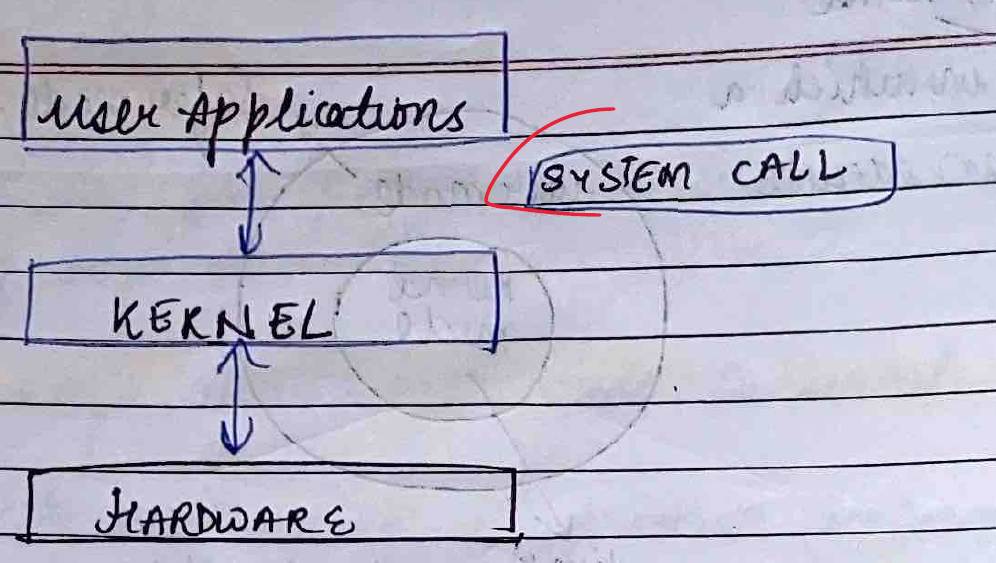 User Applications
SYSTEM CALL
KERNEL
HARDWARE